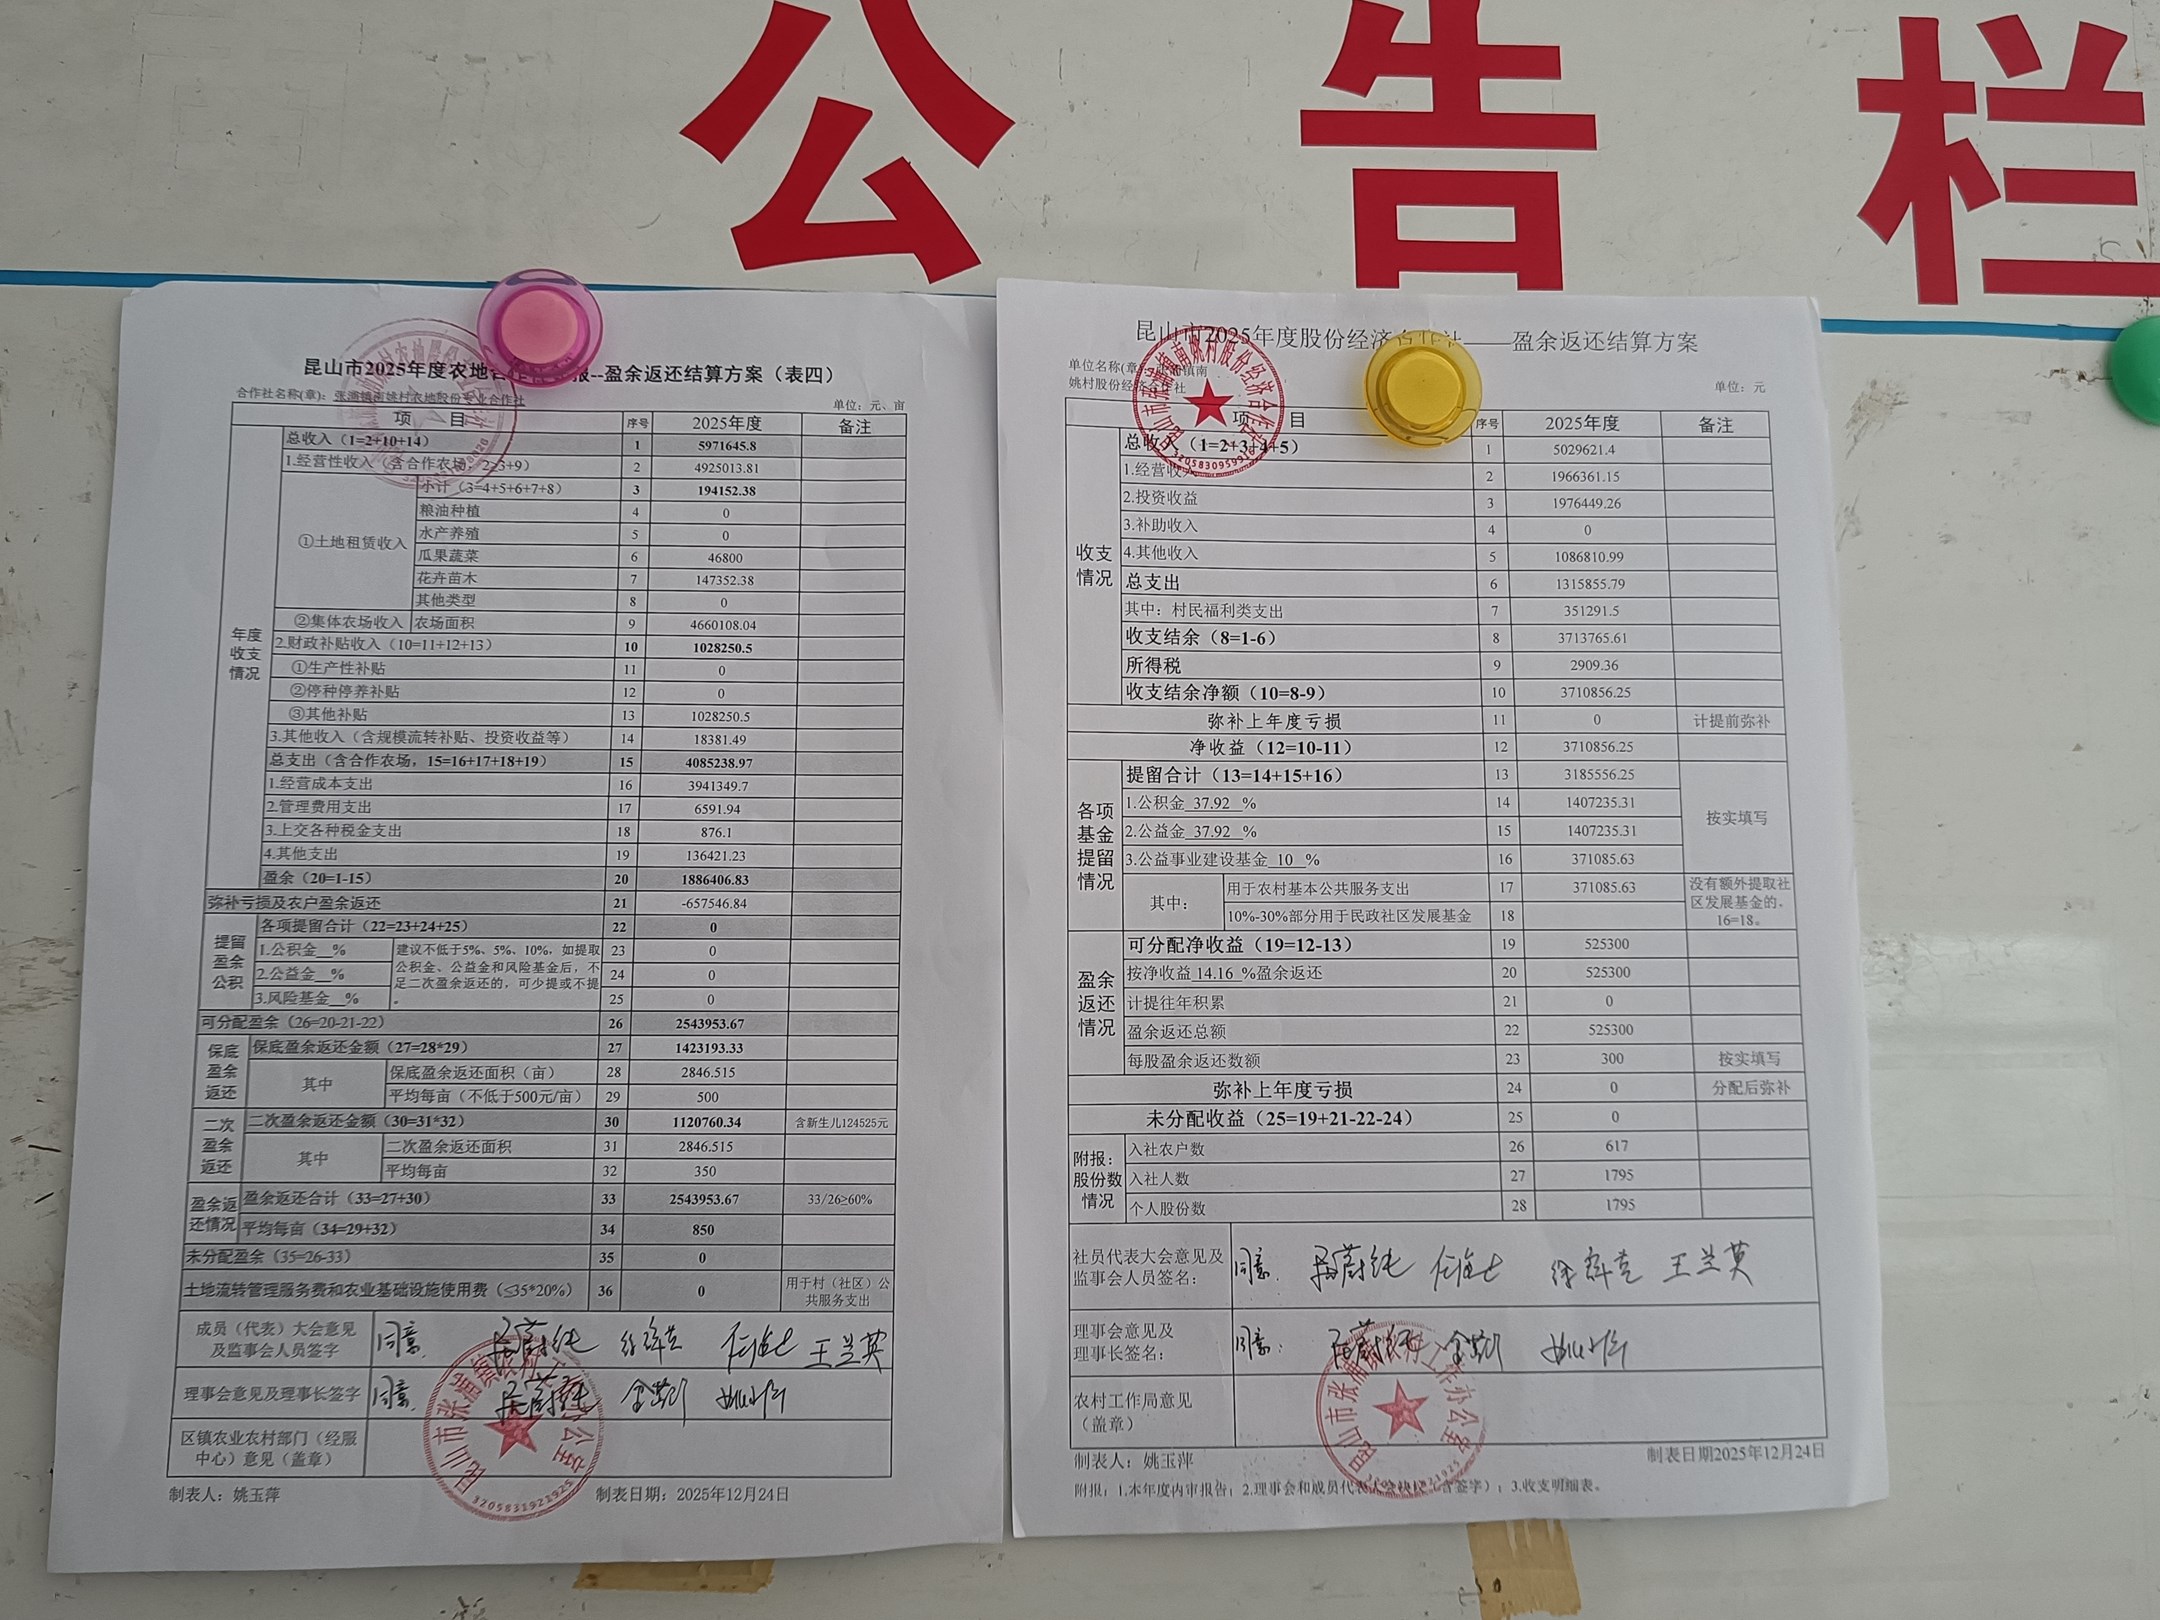 公告栏
昆山市2025年度农地合作社年报--盈余返还结算方案（表四）
合作社名称(章)：张浦镇南姚村农地股份专业合作社
单位：元、亩
项 目 序号 2025年度 备注
年度收支情况
总收入（1=2+10+14） 1 5971645.8
1.经营性收入（含合作农场，2=3+9） 2 4925013.81
①土地租赁收入 小计（3=4+5+6+7+8） 3 194152.38
粮油种植 4 0
水产养殖 5 0
瓜果蔬菜 6 46800
花卉苗木 7 147352.38
其他类型 8 0
②集体农场收入 农场面积 9 4660108.04
2.财政补贴收入（10=11+12+13） 10 1028250.5
①生产性补贴 11 0
②停种停养补贴 12 0
③其他补贴 13 1028250.5
3.其他收入（含规模流转补贴、投资收益等） 14 18381.49
总支出（含合作农场，15=16+17+18+19） 15 4085238.97
1.经营成本支出 16 3941349.7
2.管理费用支出 17 6591.94
3.上交各种税金支出 18 876.1
4.其他支出 19 136421.23
盈余（20=1-15） 20 1886406.83
弥补亏损及农户盈余返还 21 -657546.84
提留盈余公积
各项提留合计（22=23+24+25） 22 0
1.公积金__% 23 0
2.公益金__% 24 0
3.风险基金__% 25 0
建议不低于5%、5%、10%，如提取公积金、公益金和风险基金后，不足二次盈余返还的，可少提或不提。
可分配盈余（26=20-21-22） 26 2543953.67
保底盈余返还
保底盈余返还金额（27=28*29） 27 1423193.33
其中 保底盈余返还面积（亩） 28 2846.515
平均每亩（不低于500元/亩） 29 500
二次盈余返还
二次盈余返还金额（30=31*32） 30 1120760.34 含新生儿124525元
其中 二次盈余返还面积 31 2846.515
平均每亩 32 350
盈余返还情况
盈余返还合计（33=27+30） 33 2543953.67 33/26≥60%
平均每亩（34=29+32） 34 850
未分配盈余（35=26-33） 35 0
土地流转管理服务费和农业基础设施使用费（≤35*20%） 36 0 用于村（社区）公共服务支出
成员（代表）大会意见及监事会人员签字 同意. 王兰英
理事会意见及理事长签字 同意.
区镇农业农村部门（经服中心）意见（盖章）
昆山市张浦镇农村工作办公室
3205831921925
制表人：姚玉萍 制表日期：2025年12月24日
昆山市2025年度股份经济合作社——盈余返还结算方案
单位名称(章)：张浦镇南姚村股份经济合作社
单位：元
项 目 序号 2025年度 备注
收支情况
总收入（1=2+3+4+5） 1 5029621.4
1.经营收入 2 1966361.15
2.投资收益 3 1976449.26
3.补助收入 4 0
4.其他收入 5 1086810.99
总支出 6 1315855.79
其中：村民福利类支出 7 351291.5
收支结余（8=1-6） 8 3713765.61
所得税 9 2909.36
收支结余净额（10=8-9） 10 3710856.25
弥补上年度亏损 11 0 计提前弥补
净收益（12=10-11） 12 3710856.25
各项基金提留情况
提留合计（13=14+15+16） 13 3185556.25
1.公积金_37.92_% 14 1407235.31
2.公益金_37.92_% 15 1407235.31
3.公益事业建设基金_10_% 16 371085.63
按实填写
其中： 用于农村基本公共服务支出 17 371085.63
10%-30%部分用于民政社区发展基金 18
没有额外提取社区发展基金的，16=18。
盈余返还情况
可分配净收益（19=12-13） 19 525300
按净收益14.16_%盈余返还 20 525300
计提往年积累 21 0
盈余返还总额 22 525300
每股盈余返还数额 23 300 按实填写
弥补上年度亏损 24 0 分配后弥补
未分配收益（25=19+21-22-24） 25 0
附报：股份数情况
入社农户数 26 617
入社人数 27 1795
个人股份数 28 1795
社员代表大会意见及监事会人员签名： 同意. 王兰英
理事会意见及理事长签名： 同意：
农村工作局意见（盖章）
昆山市张浦镇农村工作办公室
3205831921925
制表人：姚玉萍 制表日期2025年12月24日
附报：1.本年度内审报告；2.理事会和成员代表大会决议（含签字）；3.收支明细表。